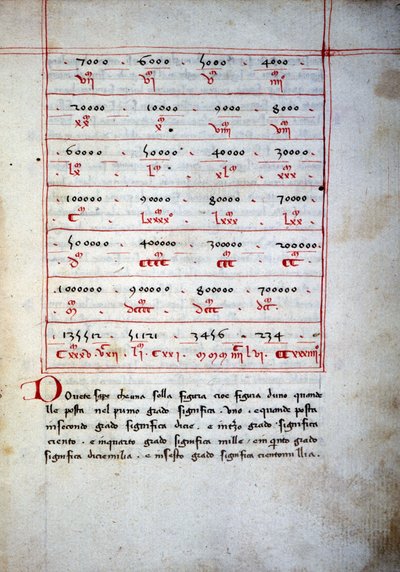 7000 . 6000 . 5000 . 4000
vii^m vi^m v^m iiii^m
20000 . 10000 . 9000 . 8000
xx^m x^m viiii^m viii^m
60000 . 50000 . 40000 . 30000
lx^m l^m xl^m xxx^m
100000 . 90000 . 80000 . 70000
C^m lxxxx^m lxxx^m lxx^m
500000 . 400000 . 300000 . 200000
d^m CCCC^m CCC^m CC^m
1000000 . 900000 . 800000 . 700000
dcccc^m dccc^m dcc^m
135512 51121 3456 234
li^m CXXi lvi CCxxxiiii
Dovete sape che una solla figura cioe figura duno quande
lle posta nel primo grado significa . vno . equande posta
insecondo grado significa dicie . e intzo grado . significa
ciento . e inquarto grado significa mille / grado
significa diciemilia . e insesto grado significa cientomillia .